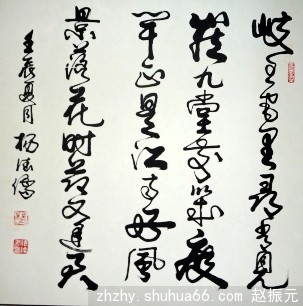 岐王宅里寻常见
崔九堂前几度
闻正是江南好风
景落花时节又逢君
壬辰夏月
zhzhy.shuhua66.com 赵振元